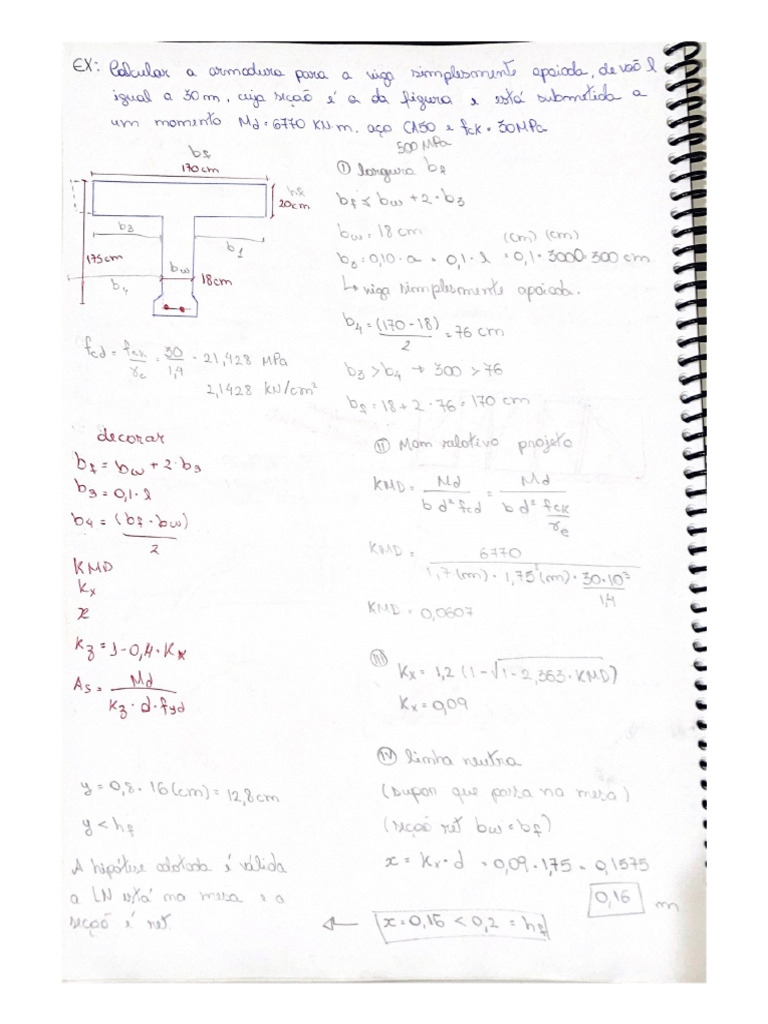 EX: Calcular a armadura para a viga simplesmente apoiada, de vão l
igual a 30 m, cuja seção é a da figura e está submetida a
um momento Md = 6770 KN·m. aço CA50 e fck = 30MPa
500 MPa
bf
170 cm
hf
20cm
b3
b1
175cm
bw
18cm
b4
fcd = fck/γc = 30/1,4 = 21,428 MPa
2,1428 kN/cm²
decorar
bf = bw + 2·b3
b3 = 0,1·l
b4 = (bf - bw)/2
KMD
Kx
x
Kz = 1-0,4·Kx
As = Md/(Kz·d·fyd)
y = 0,8·16(cm) = 12,8cm
y < hf
A hipótese adotada é válida
a LN está na mesa e a
seção é ret.
I largura bf
bf ≤ bw + 2·b3
bw = 18 cm
(cm) (cm)
b3 = 0,10·a = 0,1·l = 0,1·3000 = 300 cm
↳ viga simplesmente apoiada.
b4 = (170-18)/2 = 76 cm
b3 > b4 → 300 > 76
bf = 18 + 2·76 = 170 cm
II Mom relativo projeto
KMD = Md/(b d² fcd) = Md/(b d² fck/γc)
KMD = 6770/(1,7(m)·1,75²(m)·30·10³/1,4)
KMD = 0,0607
III
Kx = 1,2 (1-√1-2,353·KMD)
Kx = 0,09
IV linha neutra
(supor que passa na mesa)
(seção ret bw = bf)
x = Kx·d = 0,09·1,75 = 0,1575
0,16 m
← x = 0,16 < 0,2 = hf